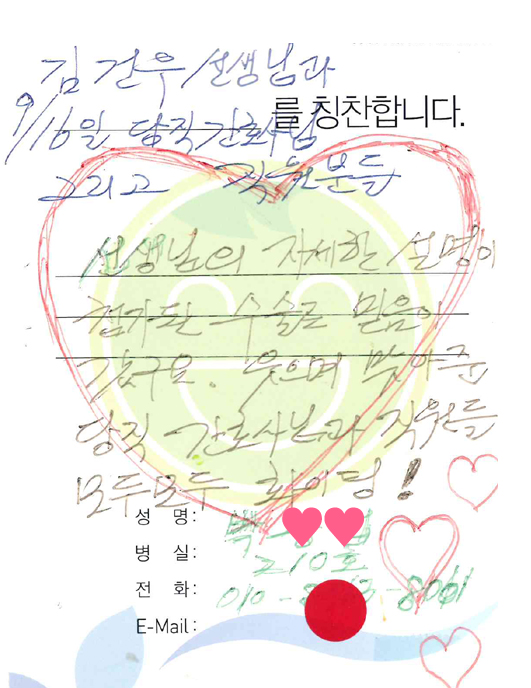 김건우 선생님과
9/16일 당직간호사님
를 칭찬합니다.
그리고 직원분들
선생님의 자세한 설명이
첨가된 수술로 믿음이
갔구요. 웃으며 맞아준
당직 간호사님과 직원들
모두모두 화이팅!
성 명:
병 실: 210호
전 화: 010-
E-Mail: